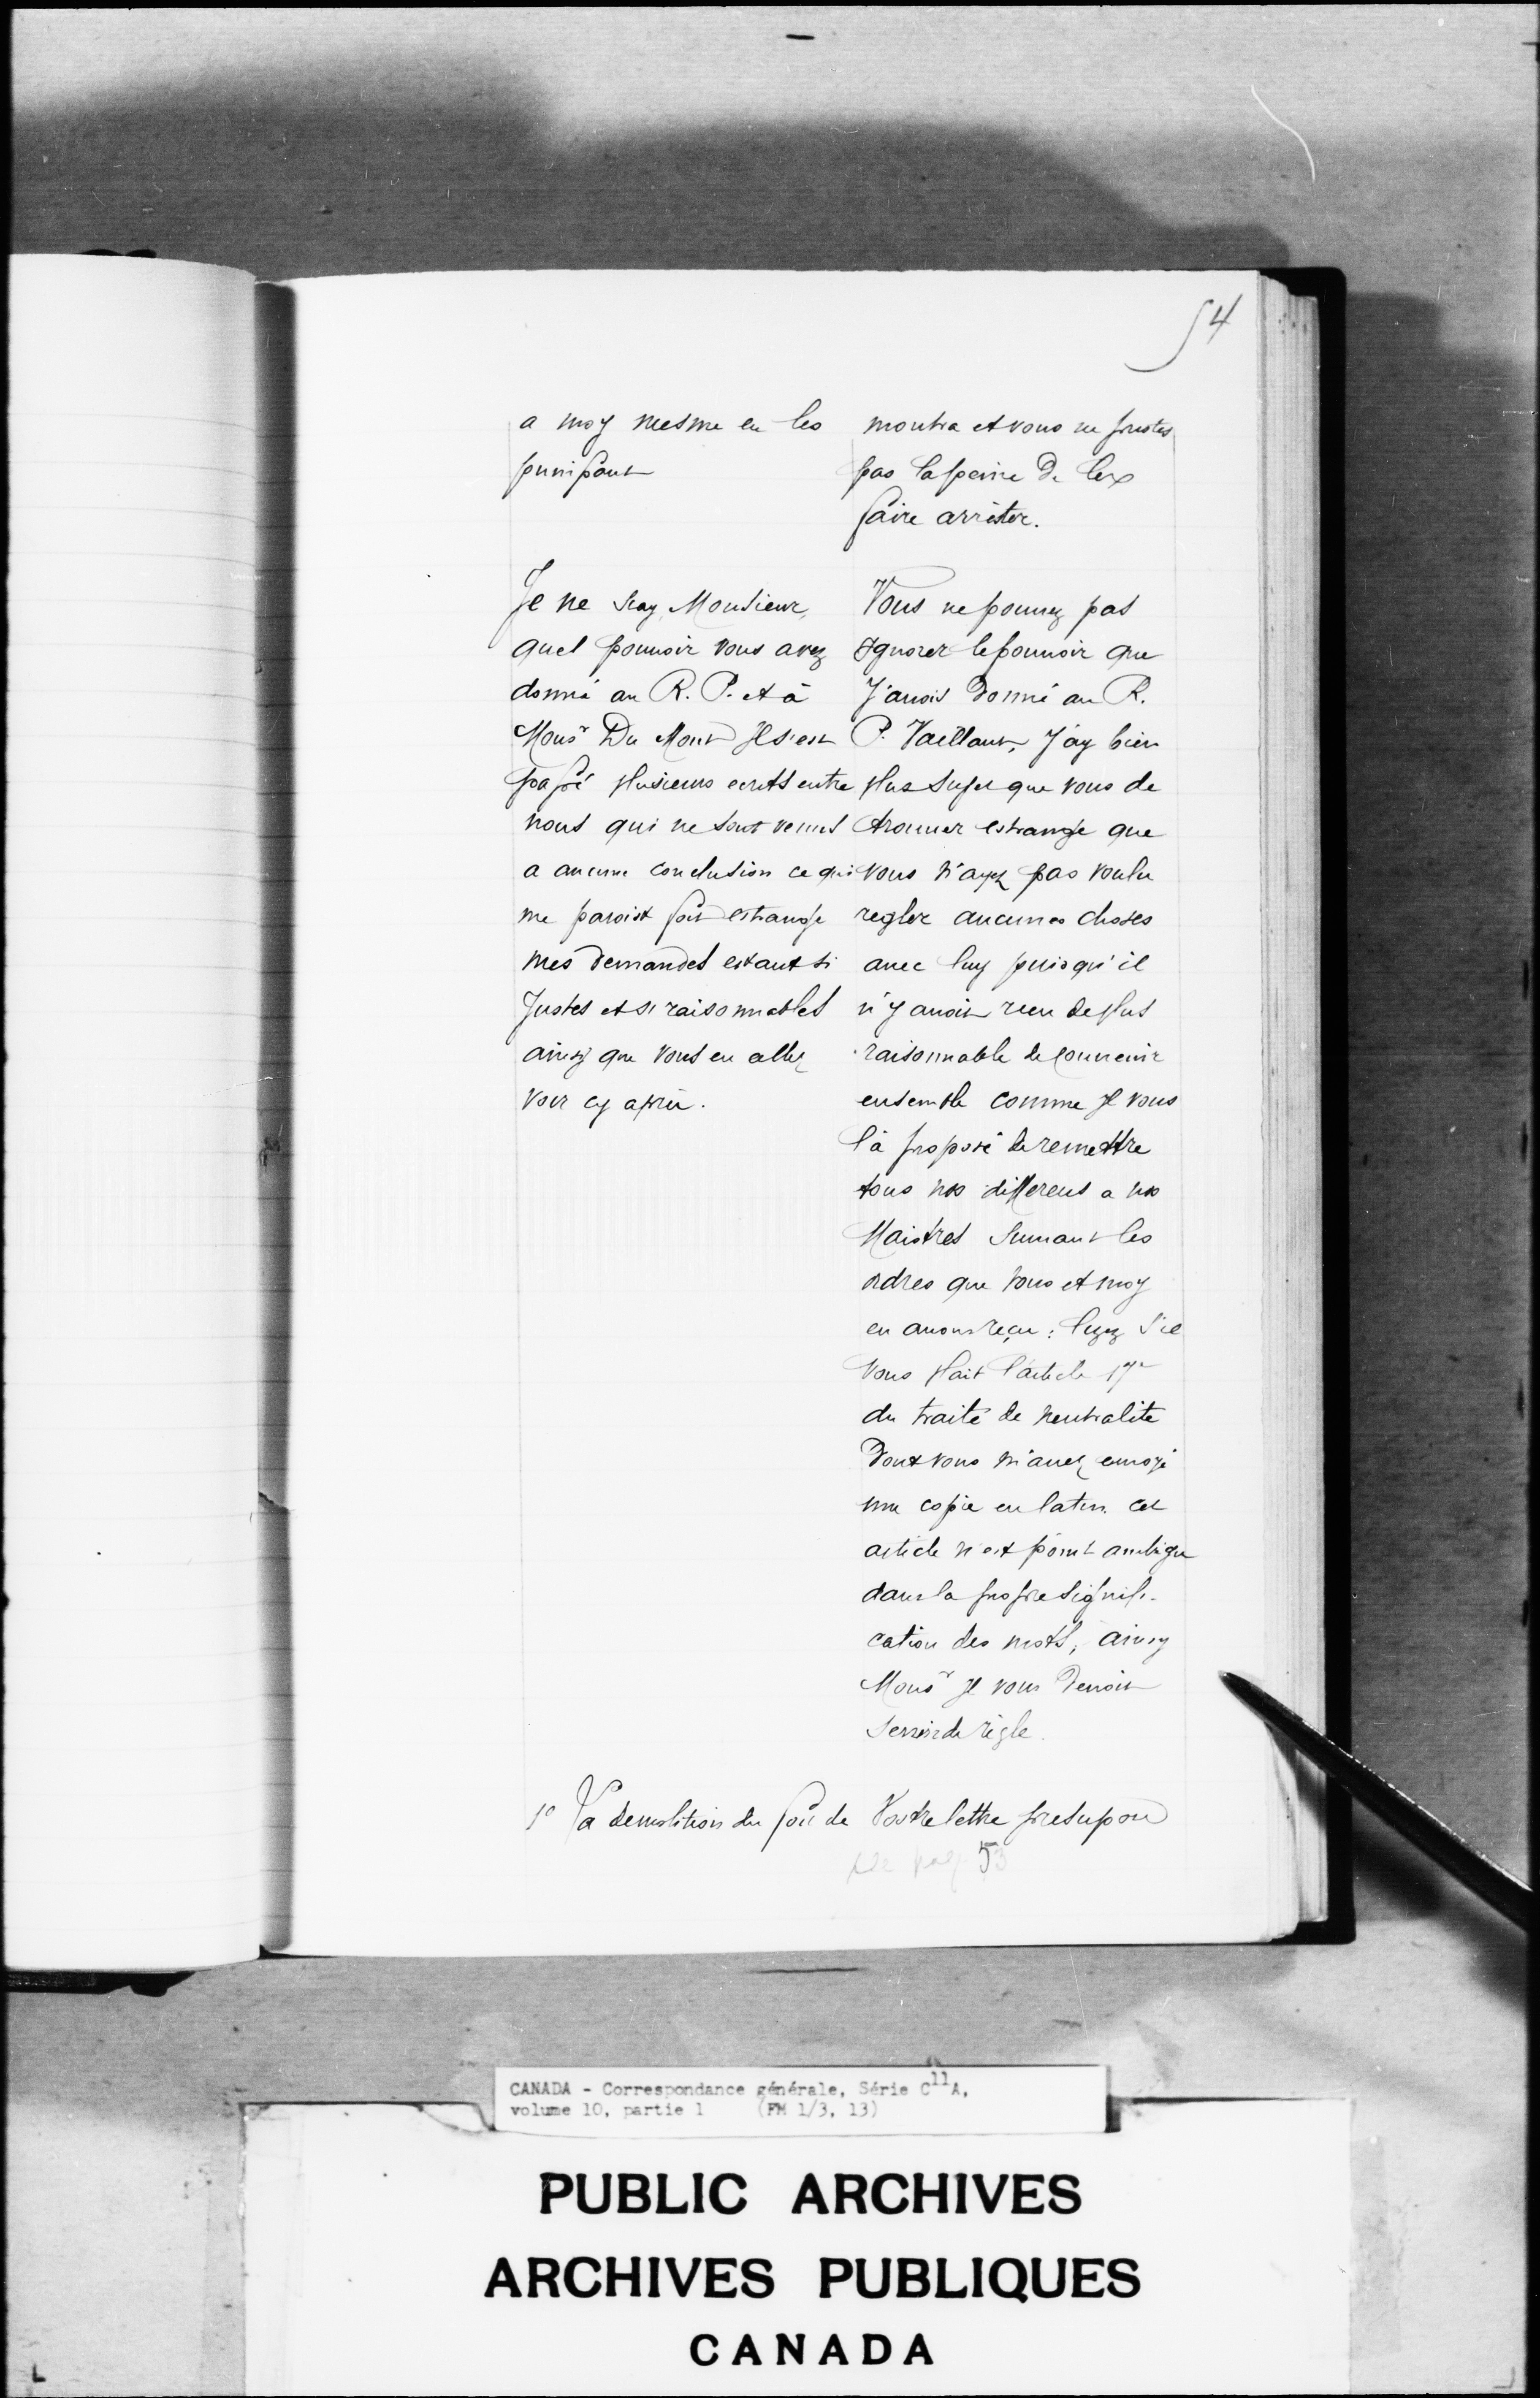 54
a moy mesme en les
punissant
Je ne sçay, Monsieur,
quel pouuoir vous avez
donné au R. P. et à
Monsr Du Mont Il s'est
passé plusieurs ecrits entre
nous qui ne sont venus
a aucune conclusion ce qui
me paroist fort estrange
mes demandes estant si
Justes et si raisonnables
ainsy que vous en allez
voir cy après.
1o La demolition du fort de
montra et vous ne pristes
pas la peine de les
faire arrêter.
Vous ne pouuez pas
Ignorer le pouuoir que
J'auois donné au R.
P. Vaillant, J'ay bien
plus sujet que vous de
trouuer estrange que
vous n'ayez pas voulu
regler aucunes choses
avec luy puis qu'il
n'y auoit rien de plus
raisonnable de conuenir
ensemble comme Il vous
l'a proposé de remettre
tous nos differens a nos
Maistres Suiuant les
ordres que vous et moy
en auons reçu: lisez s'il
vous plait l'article 17e
du traité de neutralite
dont vous m'auez enuoyé
une copie en latin. cet
article n'est point ambigu
dans la propre signifi-
cation des mots, ainsy
Monsr Il vous deuoit
seruir de règle.
Vostre lettre presupose
53
CANADA - Correspondance générale, Série C11A,
volume 10, partie 1 (FM 1/3, 13)
PUBLIC ARCHIVES
ARCHIVES PUBLIQUES
CANADA